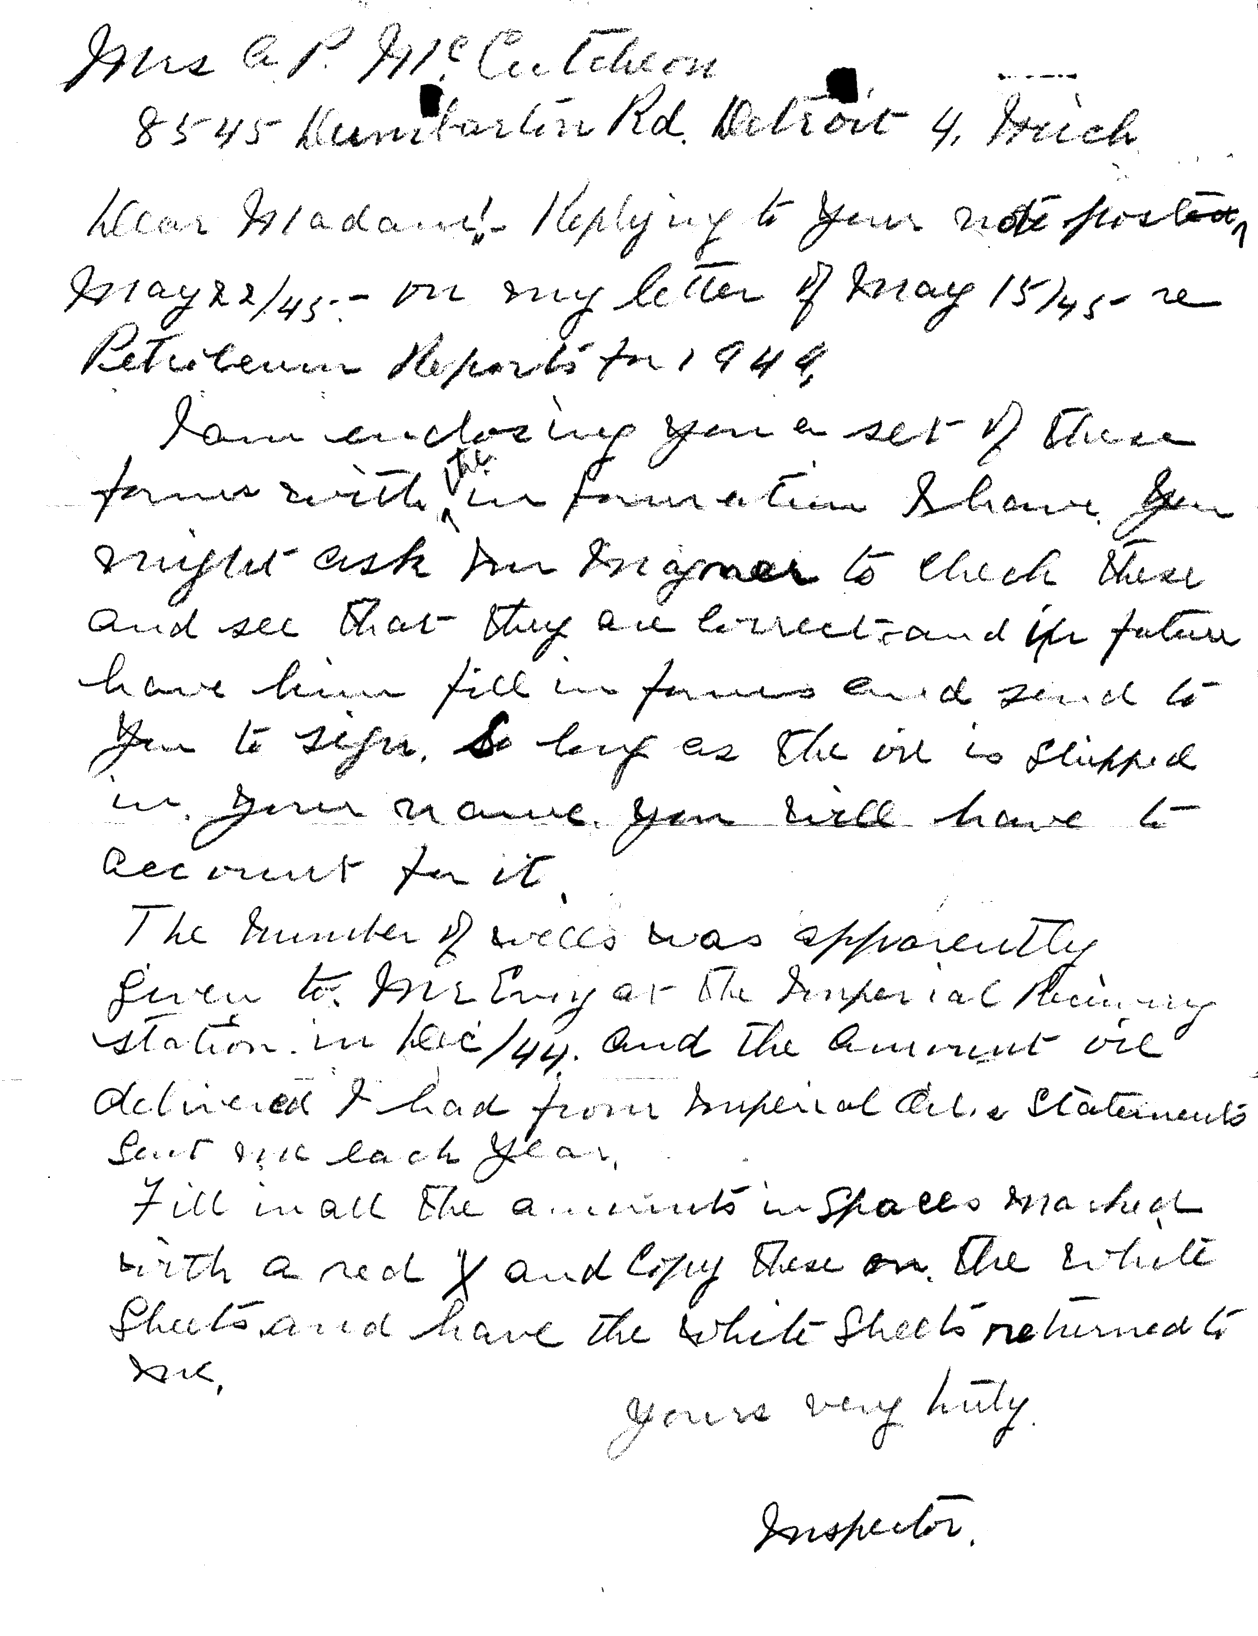 Mrs A. P. McCutcheon
8545 Dumbarton Rd. Detroit 4, Mich
Dear Madam:- Replying to your note posted
May 22/45.- on my letter of May 15/45- re
Petroleum Reports for 1944,
I am enclosing you a set of these
forms with the information I have. You
might ask Mr to check these
and see that they are correct and in future
have him fill in forms and send to
you to sign. So long as the oil is shipped
in your name you will have to
account for it.
The number of wells was apparently
given to Mr at the Imperial Receiving
station in Dec/44. and the amount oil
delivered I had from Imperial Oil's Statements
sent me each year.
Fill in all the amounts in spaces marked
with a red X and copy these on the white
sheets and have the white sheets returned to
me.
Yours very truly.
Inspector.